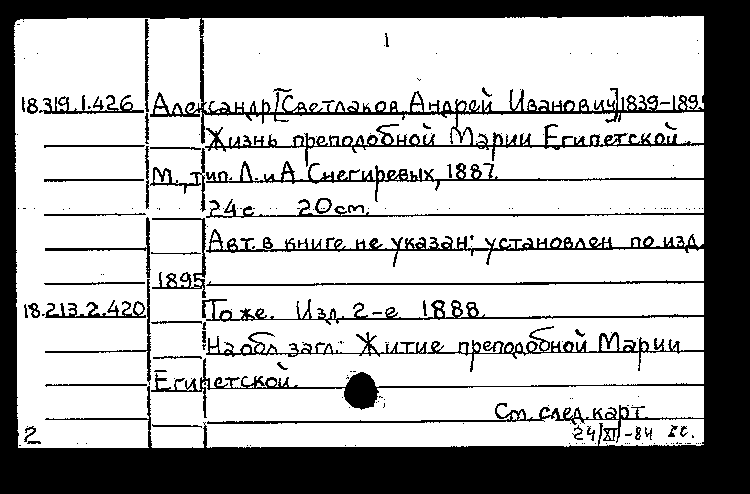 1
18.319.1.426 Александр [Светлаков, Андрей Иванович] 1839-1895
Жизнь преподобной Марии Египетской.
М., тип. Л. и А. Снегиревых, 1887.
24 с. 20 cm.
Авт. в книге не указан; установлен по изд.
1895.
18.213.2.420 То же. Изд. 2-е 1888.
На обл. загл.: Житие преподобной Марии
Египетской.
См. след. карт.
2 24/XI-84